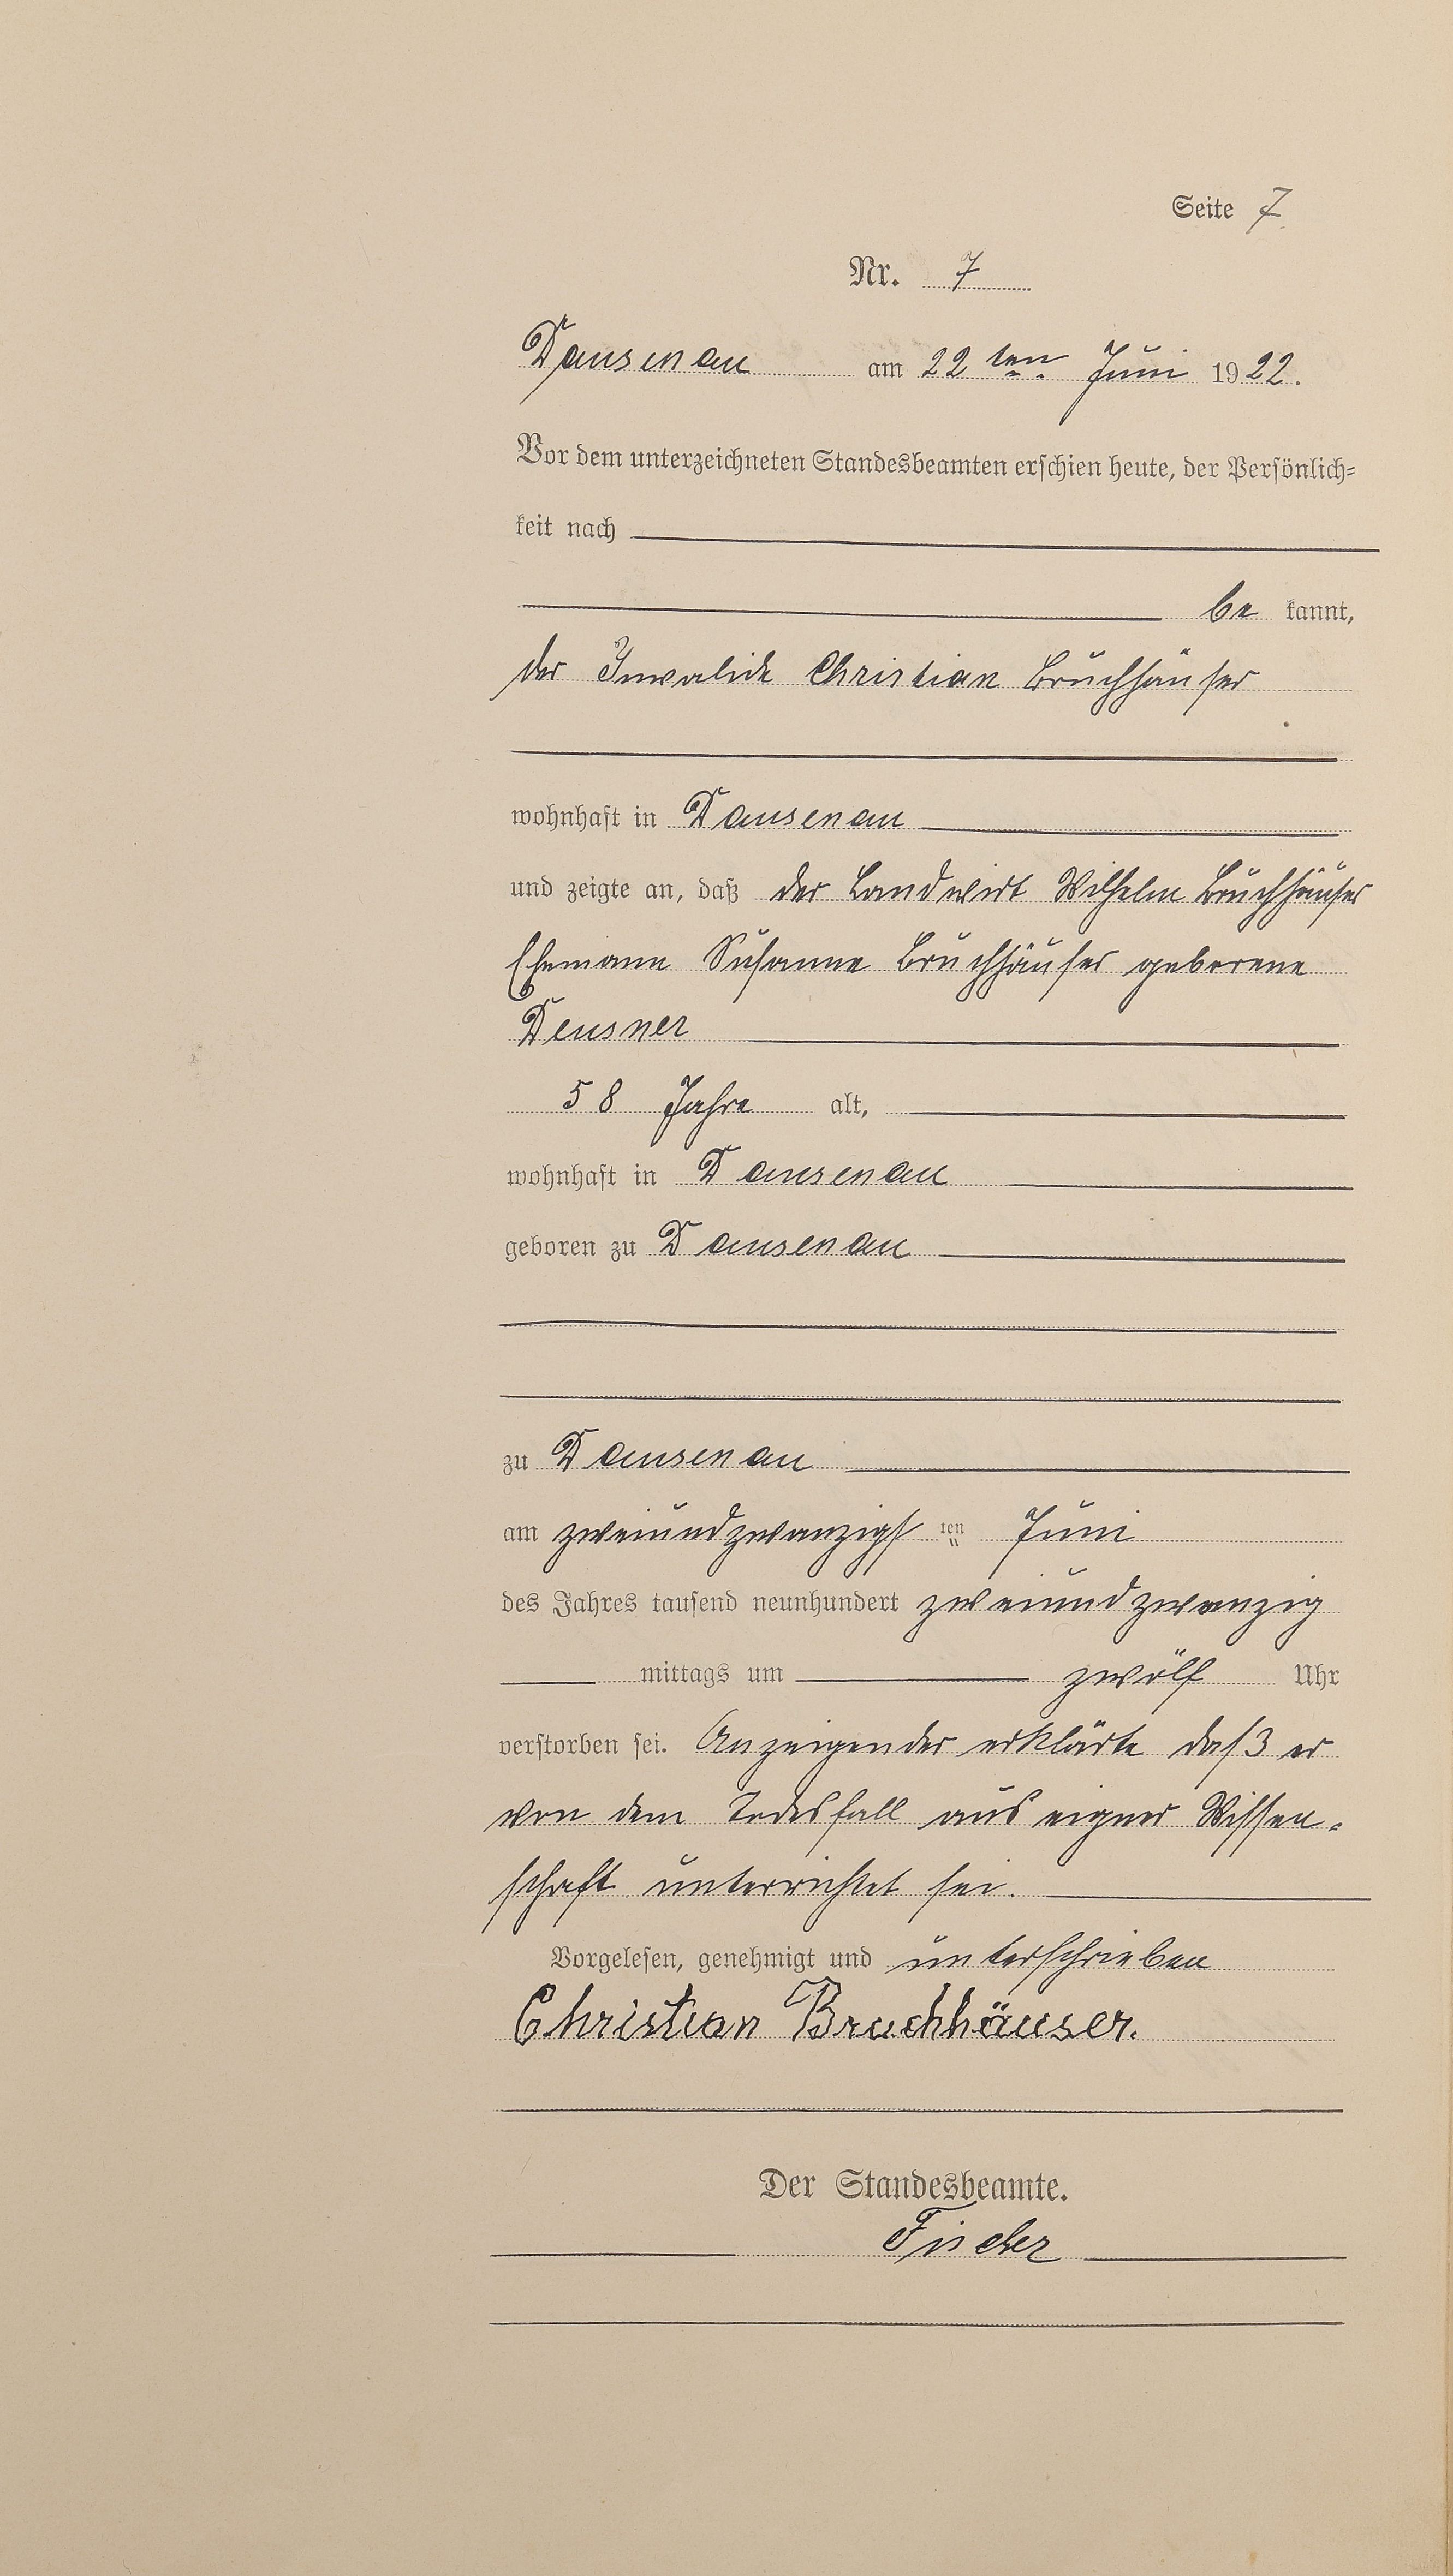 Seite 7
Nr. 7
Dausenau am 22ten Juni 1922.
Vor dem unterzeichneten Standesbeamten erschien heute, der Persönlich-
keit nach
be kannt,
der Invalide Christian Bruchhäuser
wohnhaft in Dausenau
und zeigte an, daß der Landwirt Wilhelm Bruchhäuser
Ehemann Susanne Bruchhäuser geborene
Deusner
58 Jahre alt,
wohnhaft in Dausenau
geboren zu Dausenau
zu Dausenau
am zweiundzwanzigsten Juni
des Jahres tausend neunhundert zweiundzwanzig
mittags um zwölf Uhr
verstorben sei. Anzeigender erklärte daß er
von dem Todesfall aus eigner Wissen-
schaft unterrichtet sei.
Vorgelesen, genehmigt und unterschrieben
Christian Bruchhäuser.
Der Standesbeamte.
Fischer